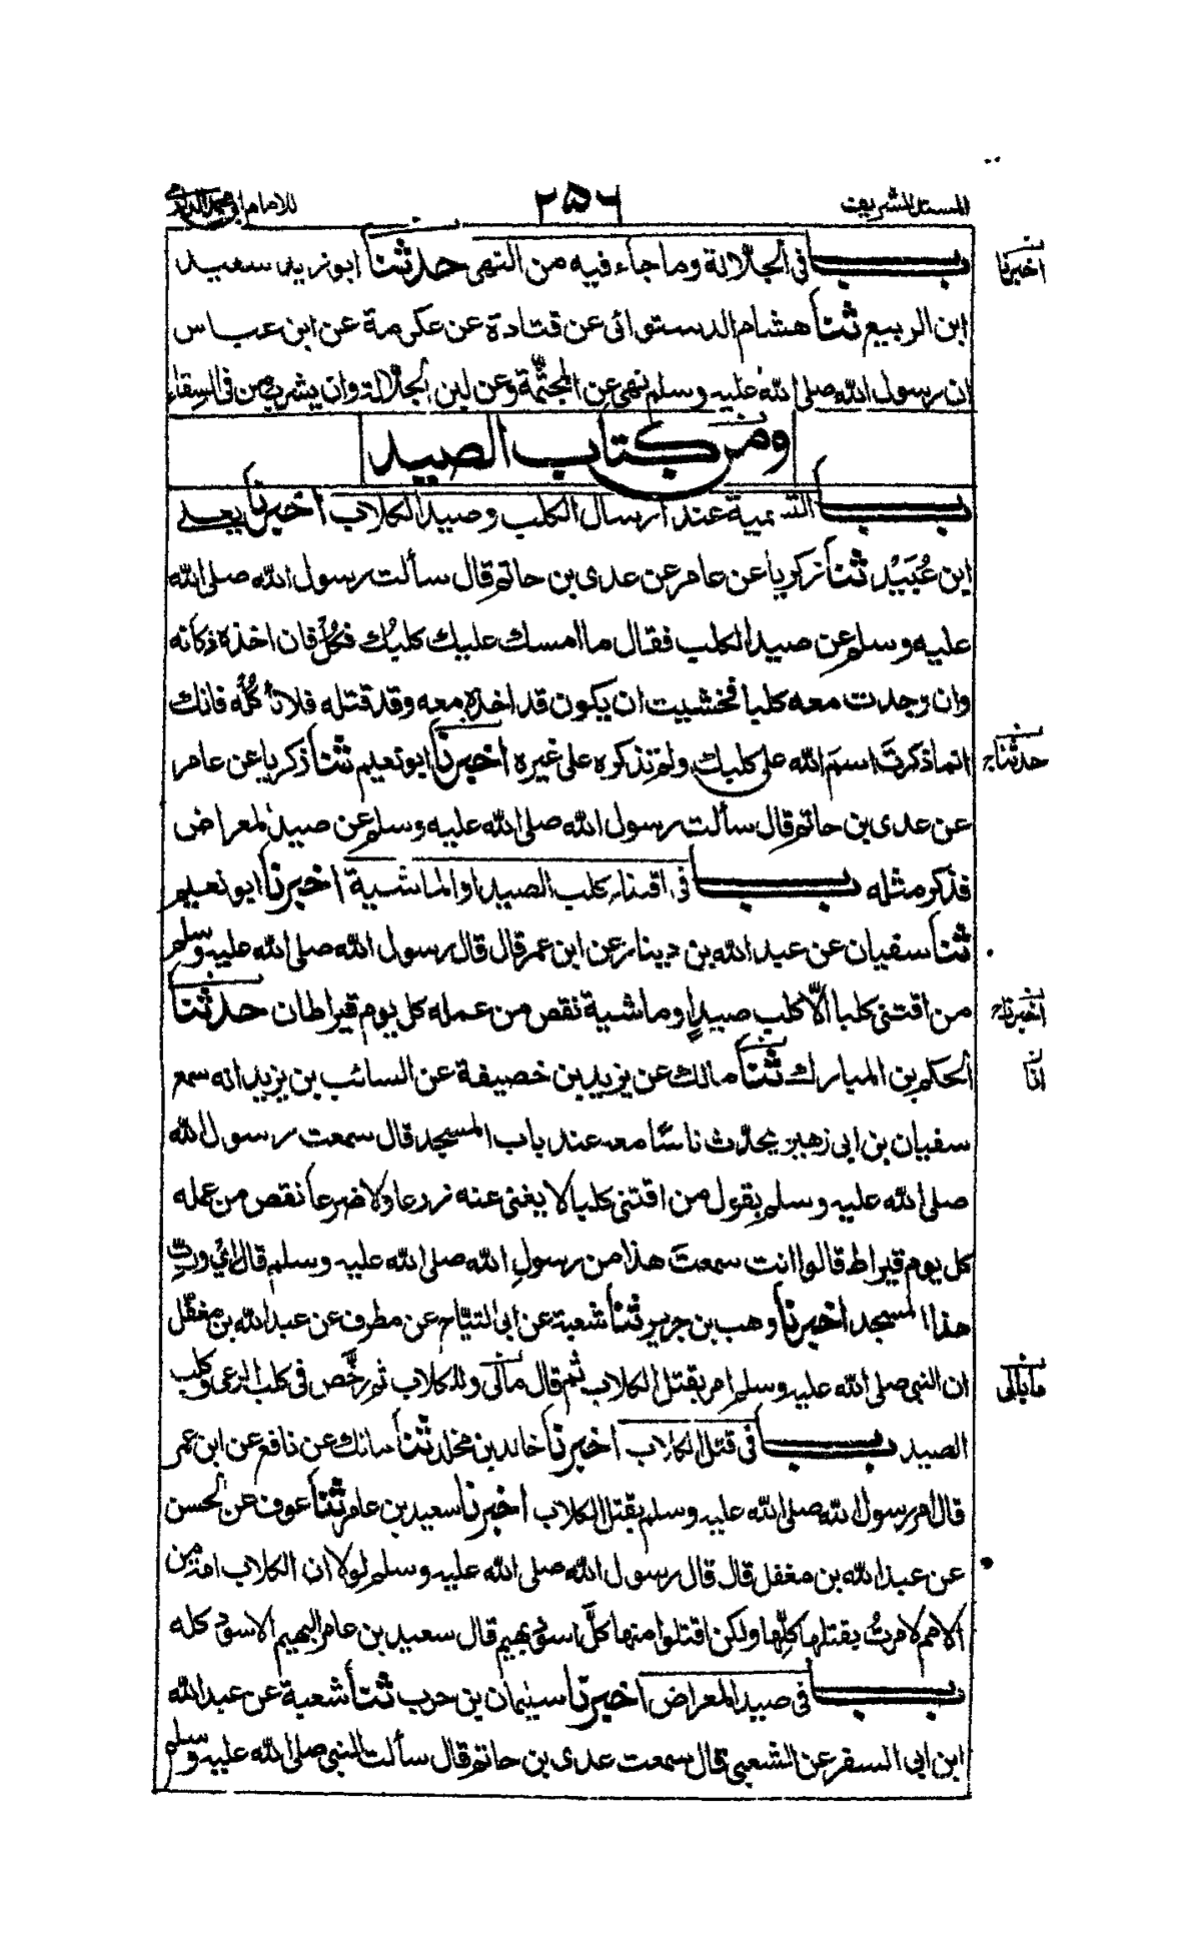 المسند الشريف ٢٥٦ للامام ابو محمد الدارمي
باب في الجلالة وما جاء فيه من النهى حدثنا ابو زيد سعيد
اخبرنا
ابن الربيع ثنا هشام الدستوائى عن قتادة عن عكرمة عن ابن عباس
ان رسول الله صلى الله عليه وسلم نهى عن المجثّمة وعن لبن الجلّالة وان يشرب من فى السقاء
ومن كتاب الصيد
باب التسمية عند ارسال الكلب وصيد الكلاب اخبرنا يعلى
ابن عُبَيْد ثنا زكريا عن عامر عن عدى بن حاتم قال سألت رسول الله صلى الله
عليه وسلم عن صيد الكلب فقال ما امسك عليك كلبُك فكُلْ فان اخذه ذكاته
وان وجدت معه كلبا فخشيت ان يكون قد اخذه معه وقد قتله فلا تأكُلْه فانك
انما ذكرتَ اسمَ الله على كلبك ولم تذكره على غيره اخبرنا ابو نعيم ثنا زكريا عن عامر
حدثنا
عن عدى بن حاتم قال سألت رسول الله صلى الله عليه وسلم عن صيد المعراض
فذكر مثله باب فى اقتناء كلب الصيد او الماشية اخبرنا ابو نعيم
ثنا سفيان عن عبد الله بن دينار عن ابن عمر قال قال رسول الله صلى الله عليه وسلم
من اقتنى كلبا الّا كلب صيدٍ او ماشية نقص من عمله كل يوم قيراطان حدثنا
اخبرنا
الحكم بن المبارك ثنا مالك عن يزيد بن خصيفة عن السائب بن يزيد انه سمع
انا
سفيان بن ابى زهير يحدّث ناسًا معه عند باب المسجد قال سمعت رسول الله
صلى الله عليه وسلم يقول من اقتنى كلبا لا يغنى عنه زرعا ولا ضرعا نقص من عمله
كل يوم قيراط قالوا انت سمعتَ هذا من رسولِ الله صلى الله عليه وسلم قال اي وربّ
هذا المسجد اخبرنا وهب بن جرير ثنا شعبة عن ابى التيّاح عن مطرف عن عبد الله بن مغفّل
ان النبى صلى الله عليه وسلم امر بقتل الكلاب ثم قال مالى وللكلاب ثم رخّص فى كلب الرعى وكلب
ما بالى
الصيد باب فى قتل الكلاب اخبرنا خالد بن مخلد ثنا مالك عن نافع عن ابن عمر
قال امر رسول الله صلى الله عليه وسلم بقتل الكلاب اخبرنا سعيد بن عامر ثنا عوف عن الحسن
عن عبد الله بن مغفل قال قال رسول الله صلى الله عليه وسلم لولا ان الكلاب امة من
الامم لامرتُ بقتلها كلّها ولكن اقتلوا منها كلَّ اسود بهيم قال سعيد بن عامر البهيم الاسود كله
باب فى صيد المعراض اخبرنا سليمان بن حرب ثنا شعبة عن عبد الله
ابن ابى السفر عن الشعبى قال سمعت عدى بن حاتم قال سألت النبى صلى الله عليه وسلم